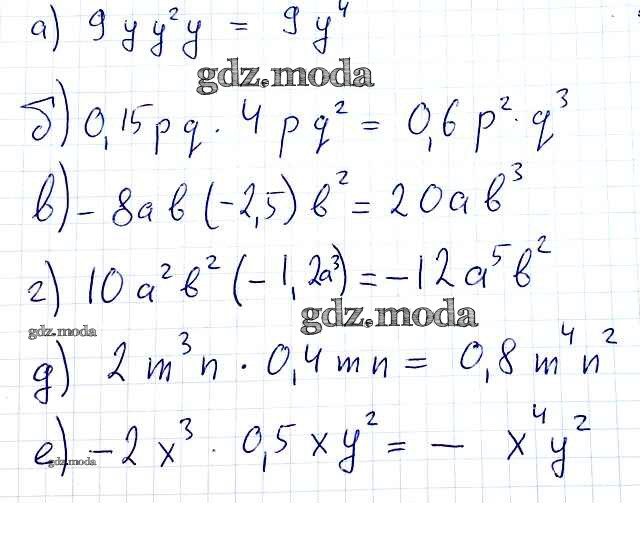 а) 9 y y² y = 9 y⁴
gdz.moda
б) 0,15 p q · 4 p q² = 0,6 p² · q³
в) - 8 а в (-2,5) в² = 20 а в³
г) 10 а² в² (-1,2а³) = -12 а⁵ в²
gdz.moda
gdz.moda
д) 2 m³ n · 0,4 m n = 0,8 m⁴ n²
е) -2 x³ · 0,5 x y² = - x⁴ y²
gdz.moda